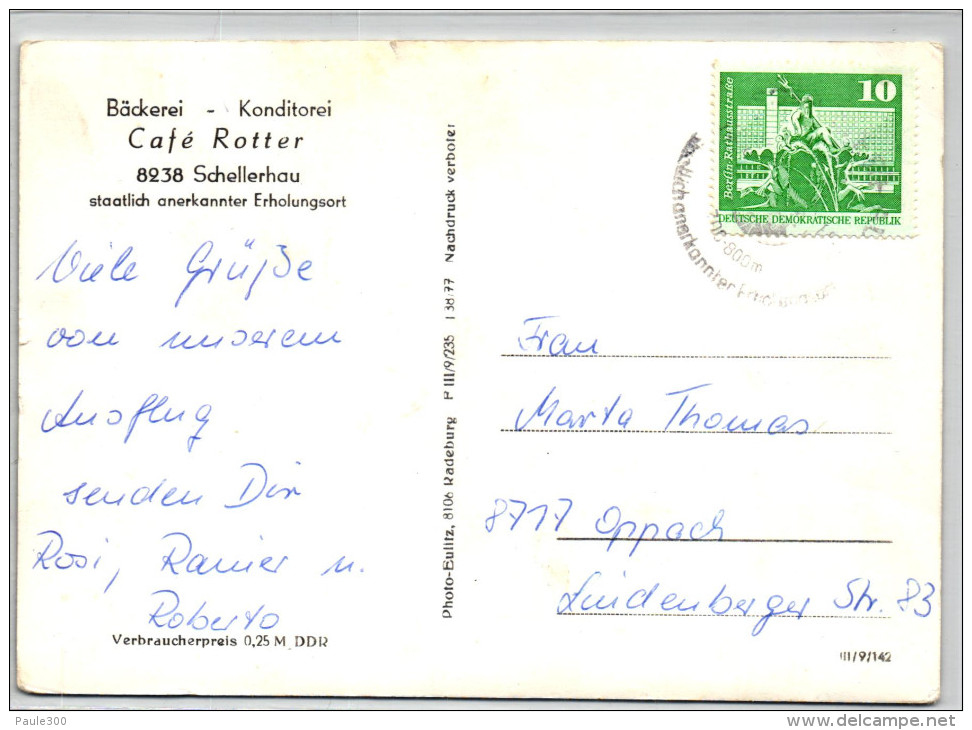 Bäckerei - Konditorei
Café Rotter
8238 Schellerhau
staatlich anerkannter Erholungsort
Viele Grüße
von unserem
Ausflug
senden Dir
Rosi, Rainer u.
Roberto
Verbraucherpreis 0,25 M DDR
Photo-Eulitz, 8106 Radeburg P III/9/235 I 38/77 Nachdruck verboten
10
Berlin-Rathausstraße
DEUTSCHE DEMOKRATISCHE REPUBLIK
800m
anerkannter
Frau
Marta Thomas
8717 Oppach
Lindenberger Str. 83
III/9/142
Paule300
delcampe.net